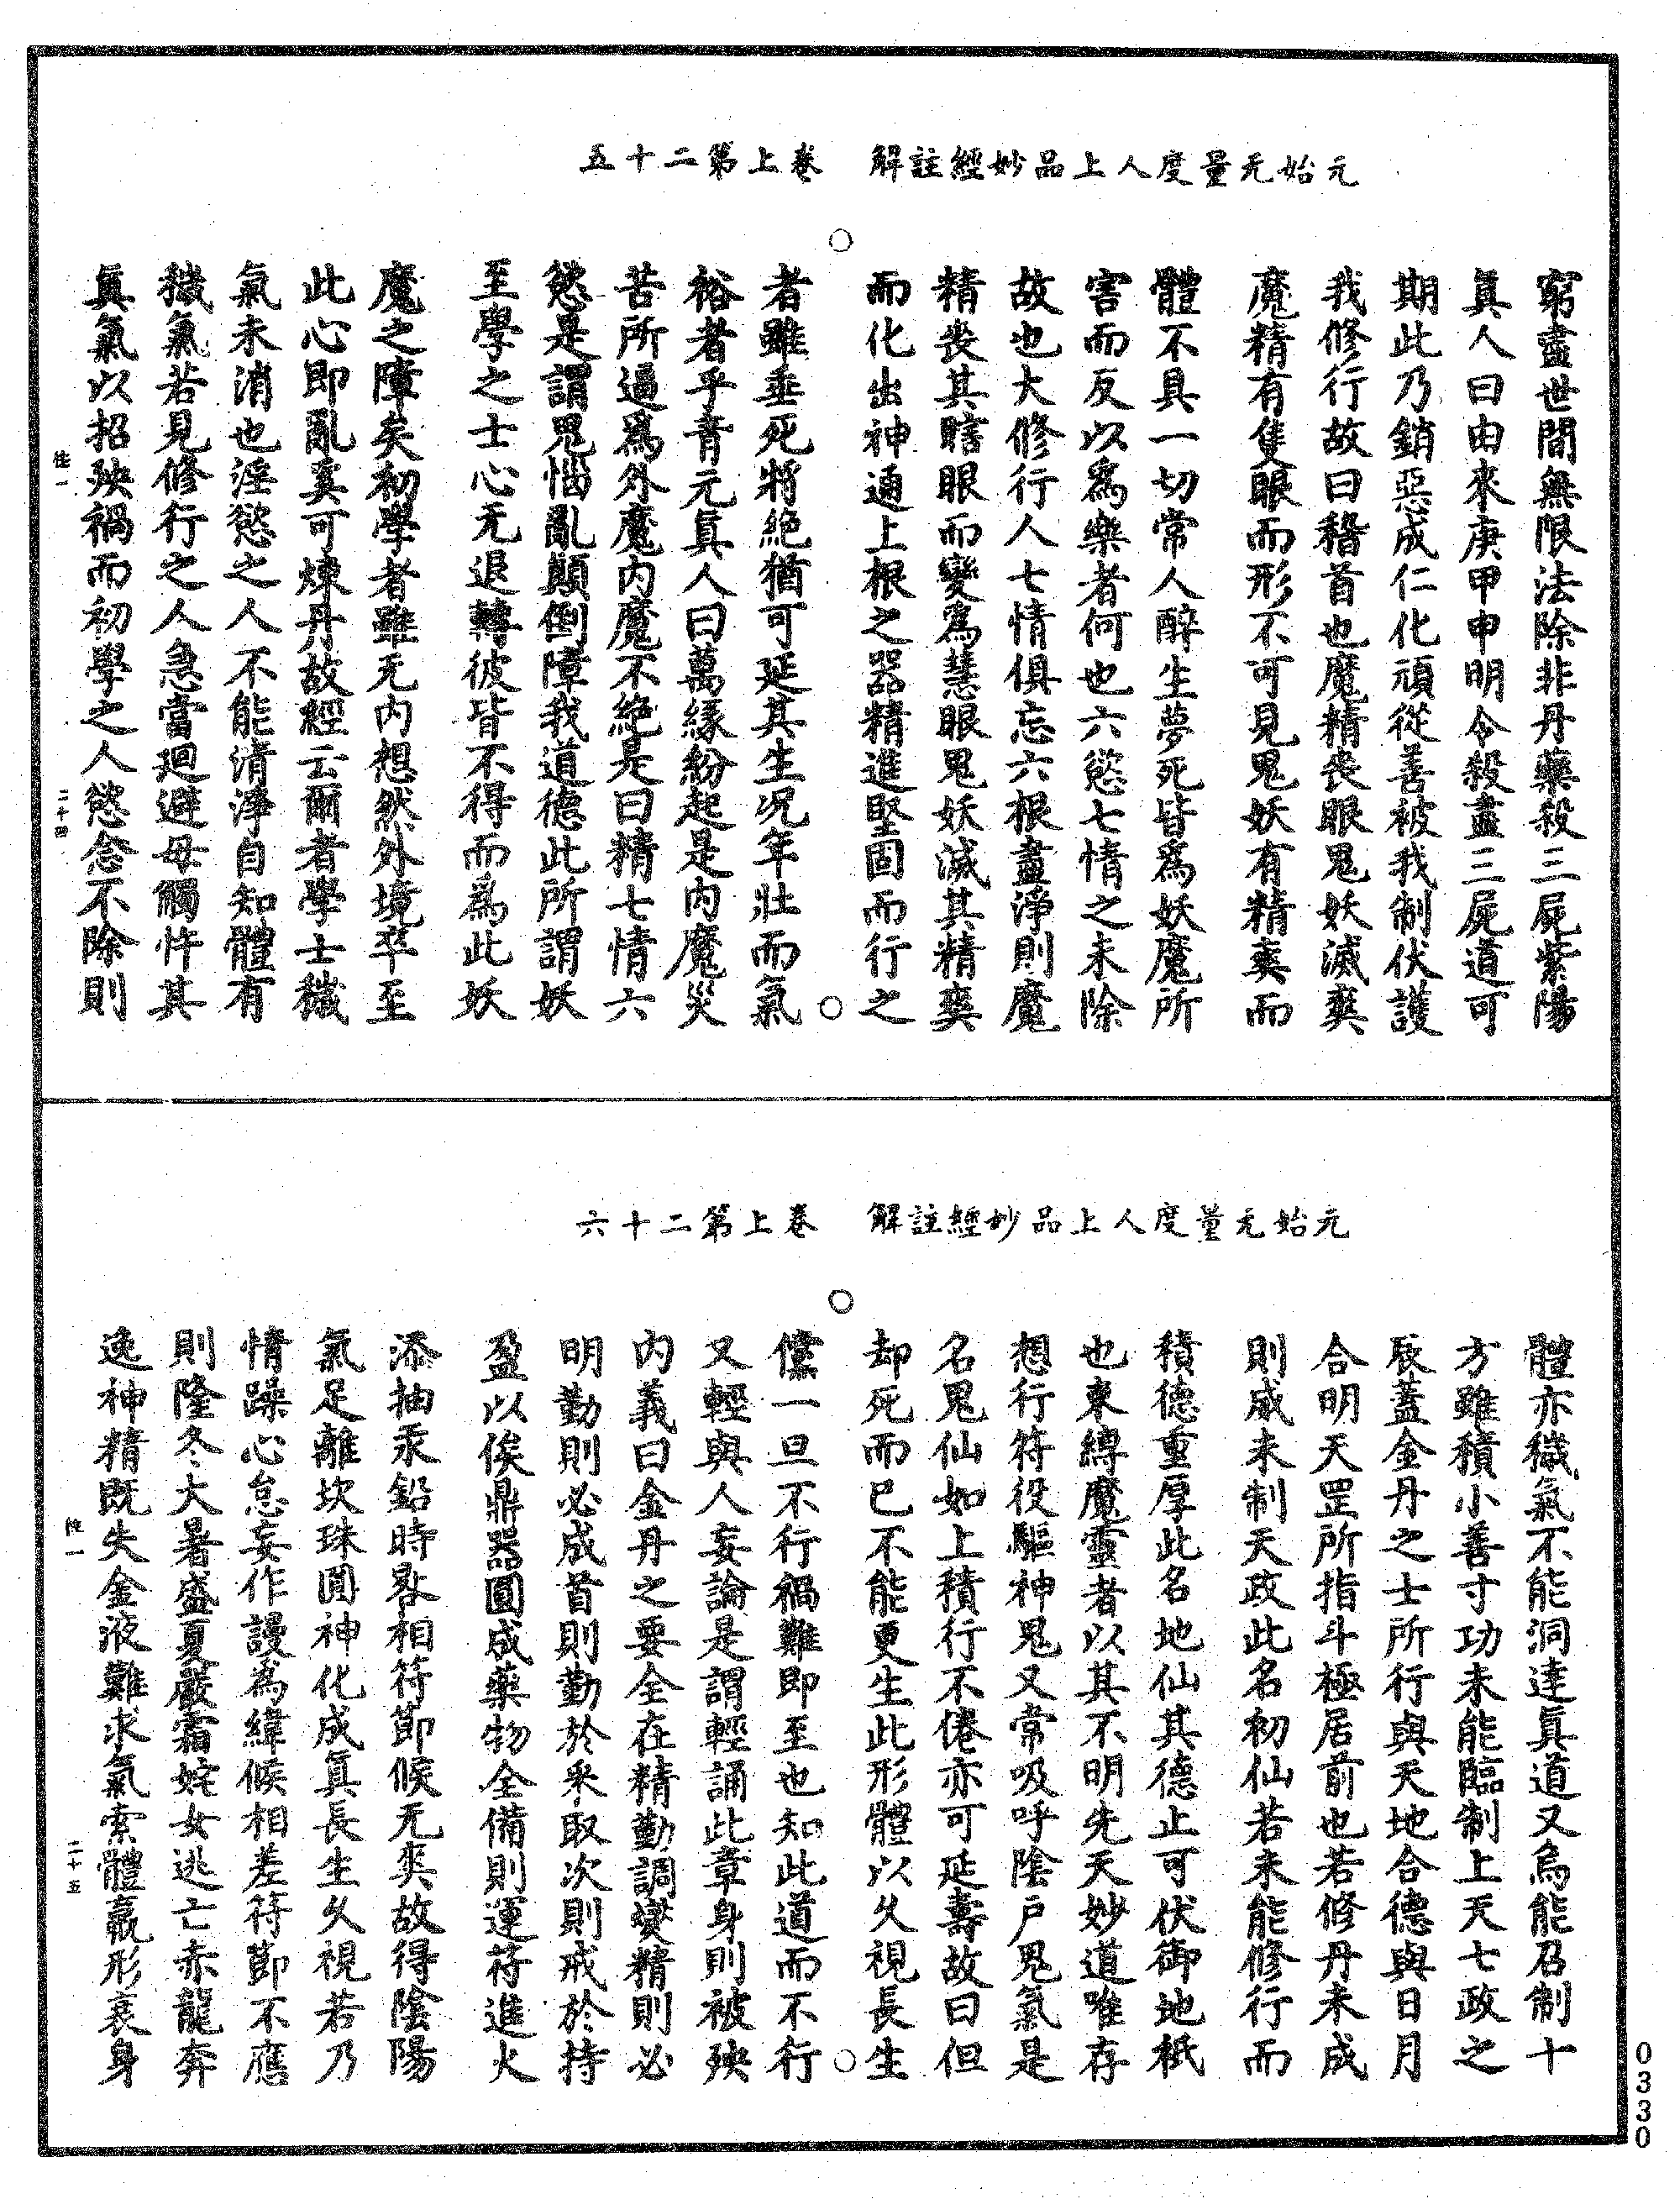 元始无量度人上品妙經註解　卷上第二十五
窮盡世間無限法除非丹藥殺三屍紫陽
真人曰由來庚甲申明令殺盡三屍道可
期此乃銷惡成仁化頑從善被我制伏護
我修行故曰稽首也魔精喪眼鬼妖滅爽
魔精有隻眼而形不可見鬼妖有精爽而
體不具一切常人醉生夢死皆為妖魔所
害而反以為樂者何也六慾七情之未除
故也大修行人七情俱忘六根盡淨則魔
精喪其瞎眼而變為慧眼鬼妖滅其精爽
而化出神通上根之器精進堅固而行之
者雖垂死將絕猶可延其生况年壯而氣
裕者乎青元真人曰萬緣紛起是內魔災
苦所逼為外魔內魔不絕是曰精七情六
慾是謂鬼惱亂顛倒障我道德此所謂妖
至學之士心无退轉彼皆不得而為此妖
魔之障矣初學者雖无內想然外境卒至
此心即亂奚可煉丹故經云爾者學士穢
氣未消也淫慾之人不能清淨自知體有
穢氣若見修行之人急當迴避毋觸忤其
真氣以招殃禍而初學之人慾念不除則
二十四
元始无量度人上品妙經註解　卷上第二十六
體亦穢氣不能洞達真道又烏能召制十
方雖積小善寸功未能臨制上天七政之
辰蓋金丹之士所行與天地合德與日月
合明天罡所指斗極居前也若修丹未成
則威未制天政此名初仙若未能修行而
積德重厚此名地仙其德止可伏御地祇
也束縛魔靈者以其不明先天妙道唯存
想行符役驅神鬼又常吸呼陰尸鬼氣是
名鬼仙如上積行不倦亦可延壽故曰但
却死而已不能更生此形體以久視長生
儻一旦不行禍難即至也知此道而不行
又輕與人妄論是謂輕誦此章身則被殃
內義曰金丹之要全在精勤調燮精則必
明勤則必成首則勤於采取次則戒於持
盈以俟鼎器圓成藥物全備則運符進火
添抽汞鉛時晷相符節候无爽故得陰陽
氣足離坎珠圓神化成真長生久視若乃
情躁心怠妄作謾為緯候相差符節不應
則隆冬大暑盛夏嚴霜姹女逃亡赤龍奔
逸神精既失金液難求氣索體羸形衰身
二十五
0330